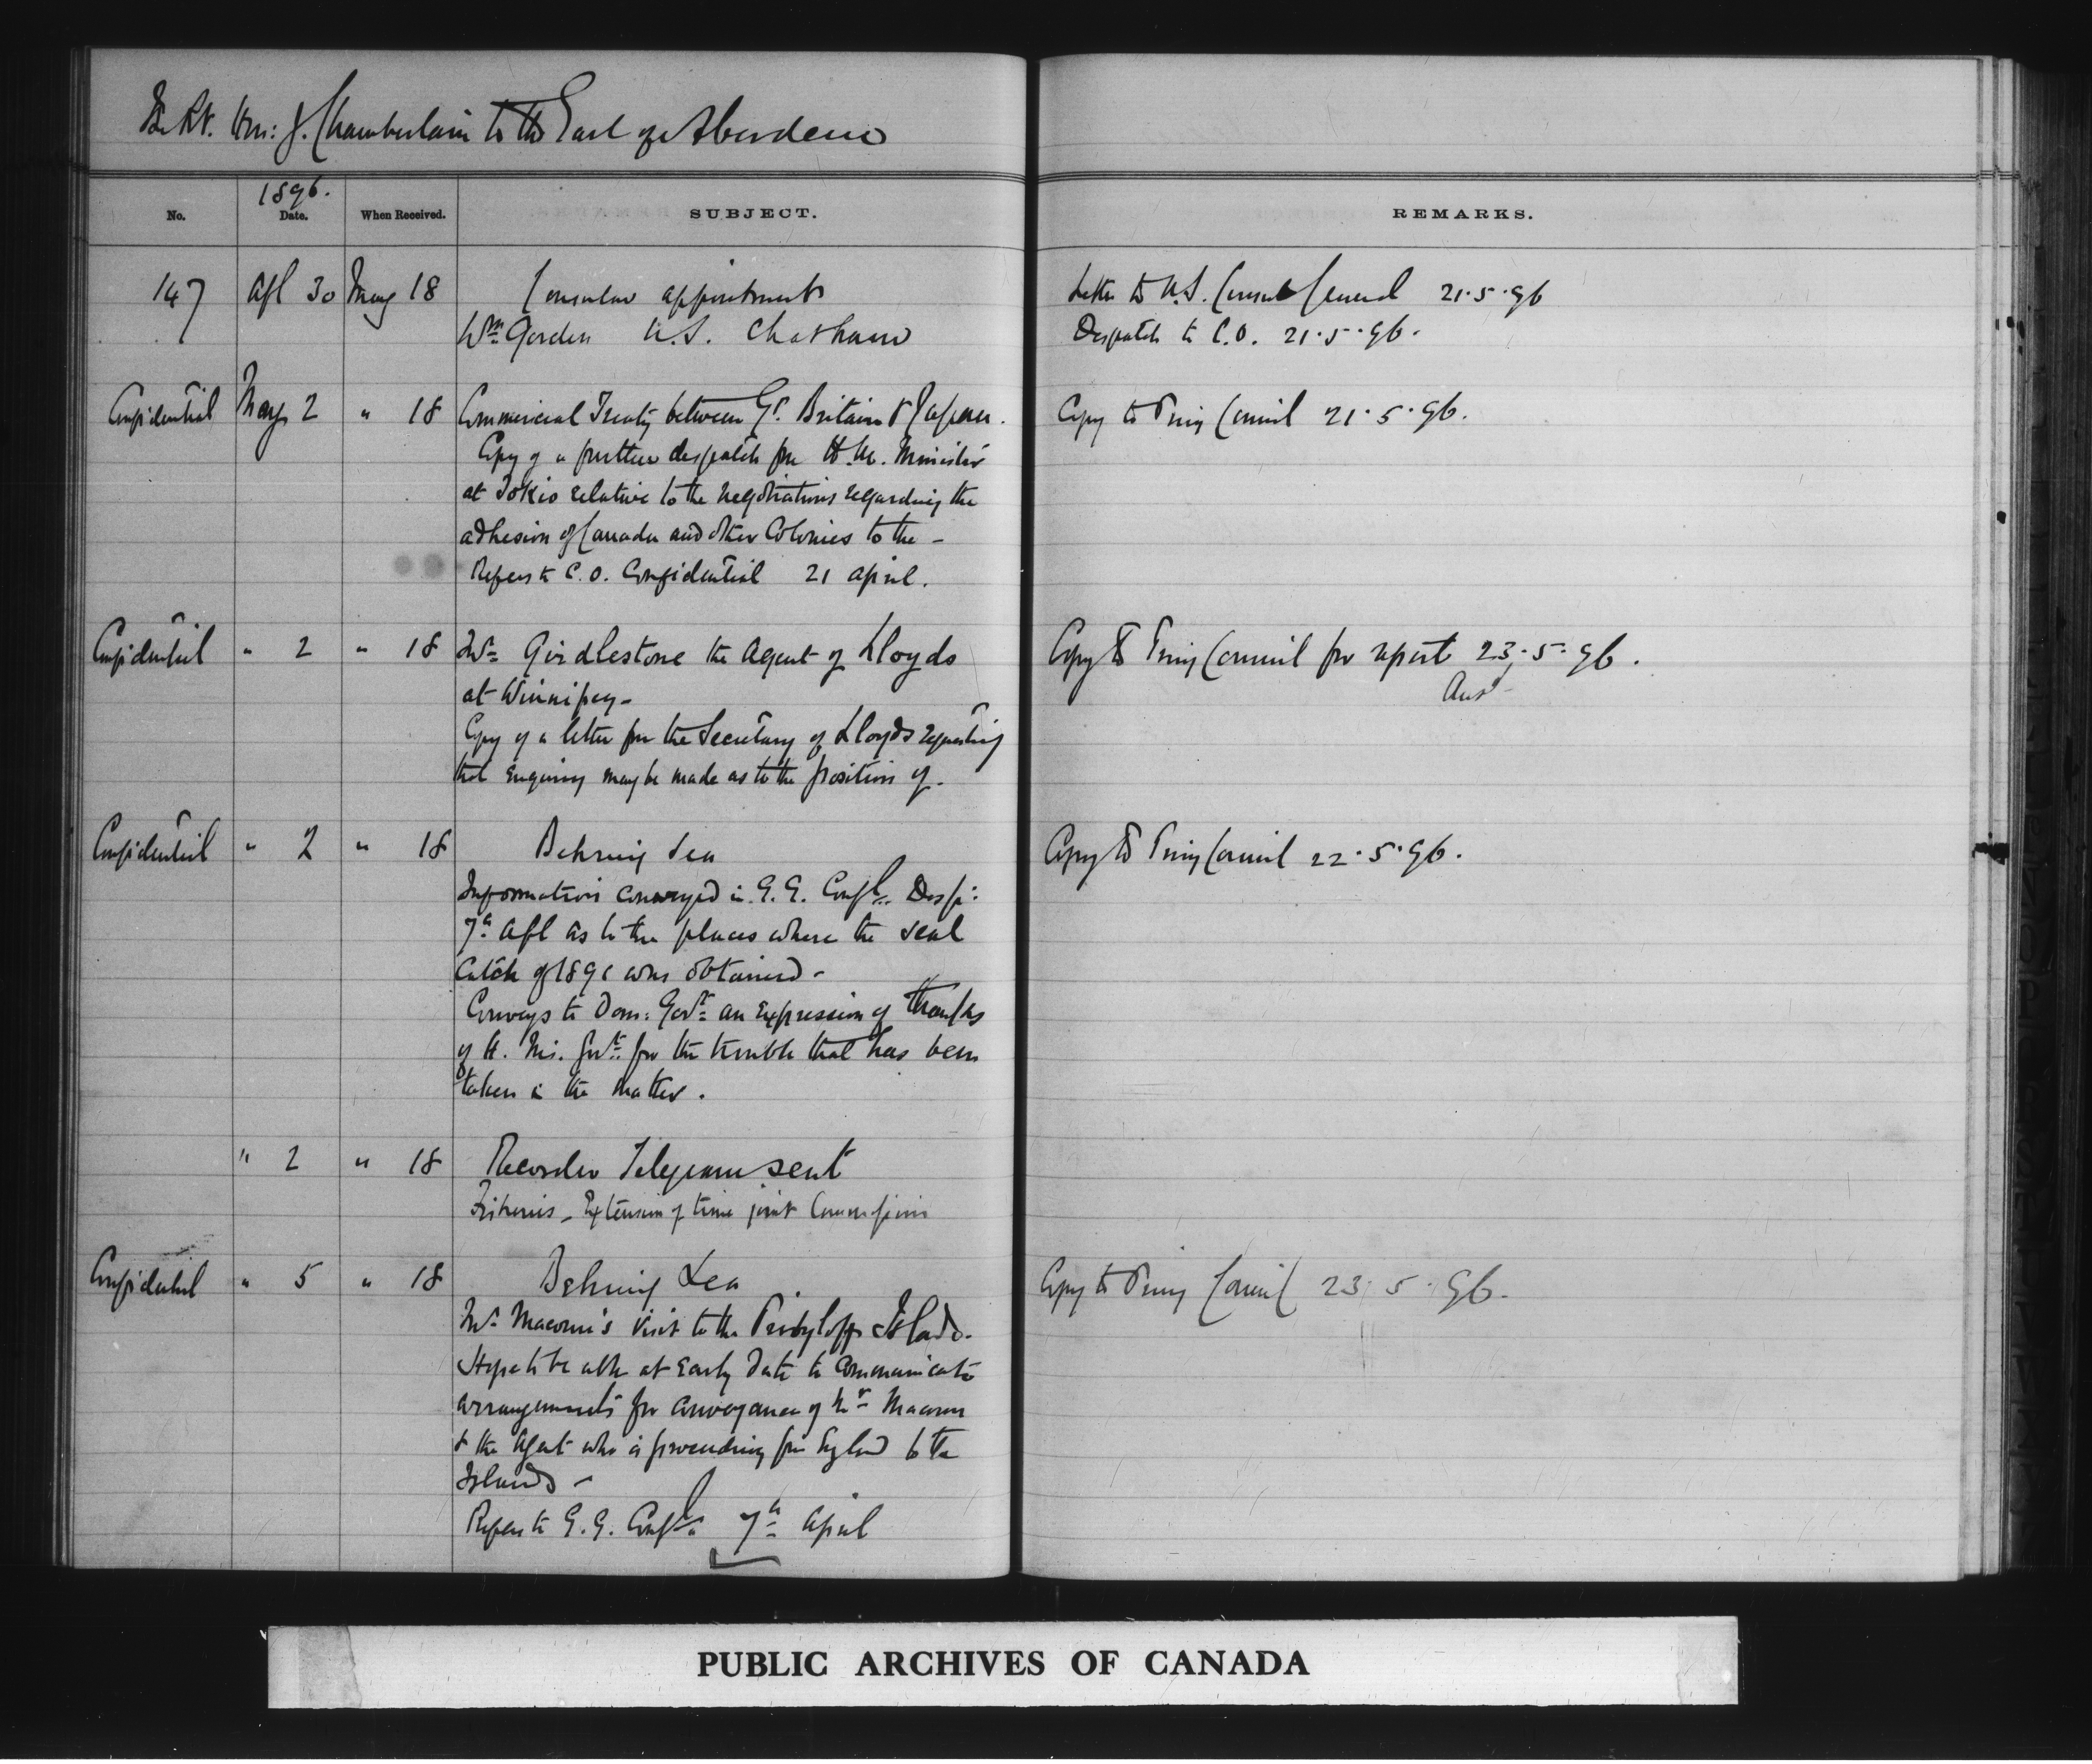 The Rt. Hon: J. Chamberlain to the Earl of Aberdeen
1896.
No. Date. When Received. SUBJECT. REMARKS.
147 Apl 30 May 18 Consular appointments Letter to U.S. Consul General 21.5.96
Wm Gordon U.S. Chatham Despatch to C.O. 21.5.96.
Confidential May 2 " 18 Commercial Treaty between Gt. Britain & Japan. Copy to Privy Council 21.5.96.
Copy of a further despatch fm H.M. Minister
at Tokio relative to the negotiations regarding the
adhesion of Canada and other Colonies to the –
Refers to C.O. Confidential 21 april.
Confidential " 2 " 18 Mr Girdlestone the Agent of Lloyds Copy to Privy Council for report 23.5.96.
at Winnipeg – Ansd
Copy of a letter fm the Secretary of Lloyds requesting
that enquiry may be made as to the position of –
Confidential " 2 " 18 Behring Sea Copy to Privy Council 22.5.96.
Information conveyed in G.G. Confl. Desp:
7th Apl as to the places where the seal
catch of 1891 was obtained –
Conveys to Dom: Govt an expression of thanks
of H. M's. Govt for the trouble that has been
taken in the matter.
" 2 " 18 Recorder Telegram sent
Fisheries – Extension of time joint Commission
Confidential " 5 " 18 Behring Sea Copy to Privy Council 23.5.96.
Mr Macoun's visit to the Pribyloff Islds.
Hope to be able at early date to communicate
arrangements for conveyance of Mr Macoun
& the Agent who is proceeding fm England to the
Islands –
Refers to G.G. Confl 7th April
PUBLIC ARCHIVES OF CANADA